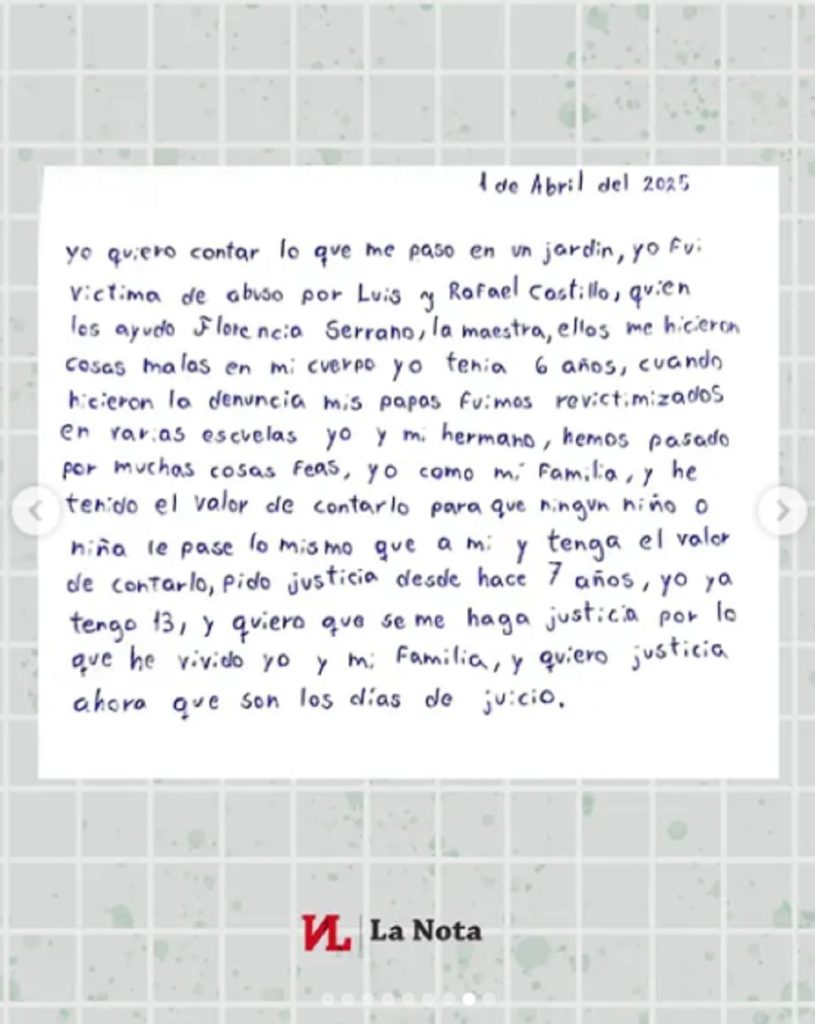 1 de Abril del 2025
yo quiero contar lo que me paso en un jardin, yo fui
victima de abuso por Luis y Rafael Castillo, quien
los ayudo Florencia Serrano, la maestra, ellos me hicieron
cosas malas en mi cuerpo yo tenia 6 años, cuando
hicieron la denuncia mis papas fuimos revictimizados
en varias escuelas yo y mi hermano, hemos pasado
por muchas cosas feas, yo como mi familia, y he
tenido el valor de contarlo para que ningun niño o
niña le pase lo mismo que a mi y tenga el valor
de contarlo, pido justicia desde hace 7 años, yo ya
tengo 13, y quiero que se me haga justicia por lo
que he vivido yo y mi familia, y quiero justicia
ahora que son los días de juicio.
NL | La Nota